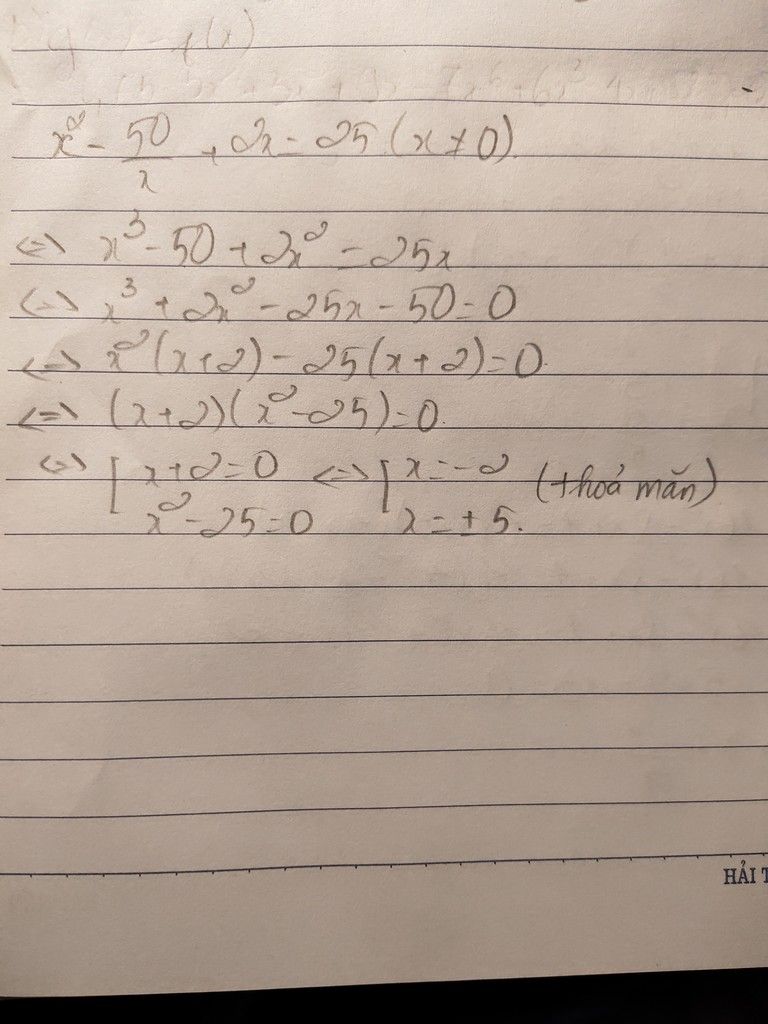 x² - 50/x + 2x = 25 (x ≠ 0)
<=> x³ - 50 + 2x² = 25x
<=> x³ + 2x² - 25x - 50 = 0
<=> x²(x+2) - 25(x+2) = 0.
<=> (x+2)(x² - 25) = 0.
<=> [ x+2 = 0 <=> [ x = -2 (thoả mãn)
x² - 25 = 0 x = ± 5.
HẢI T